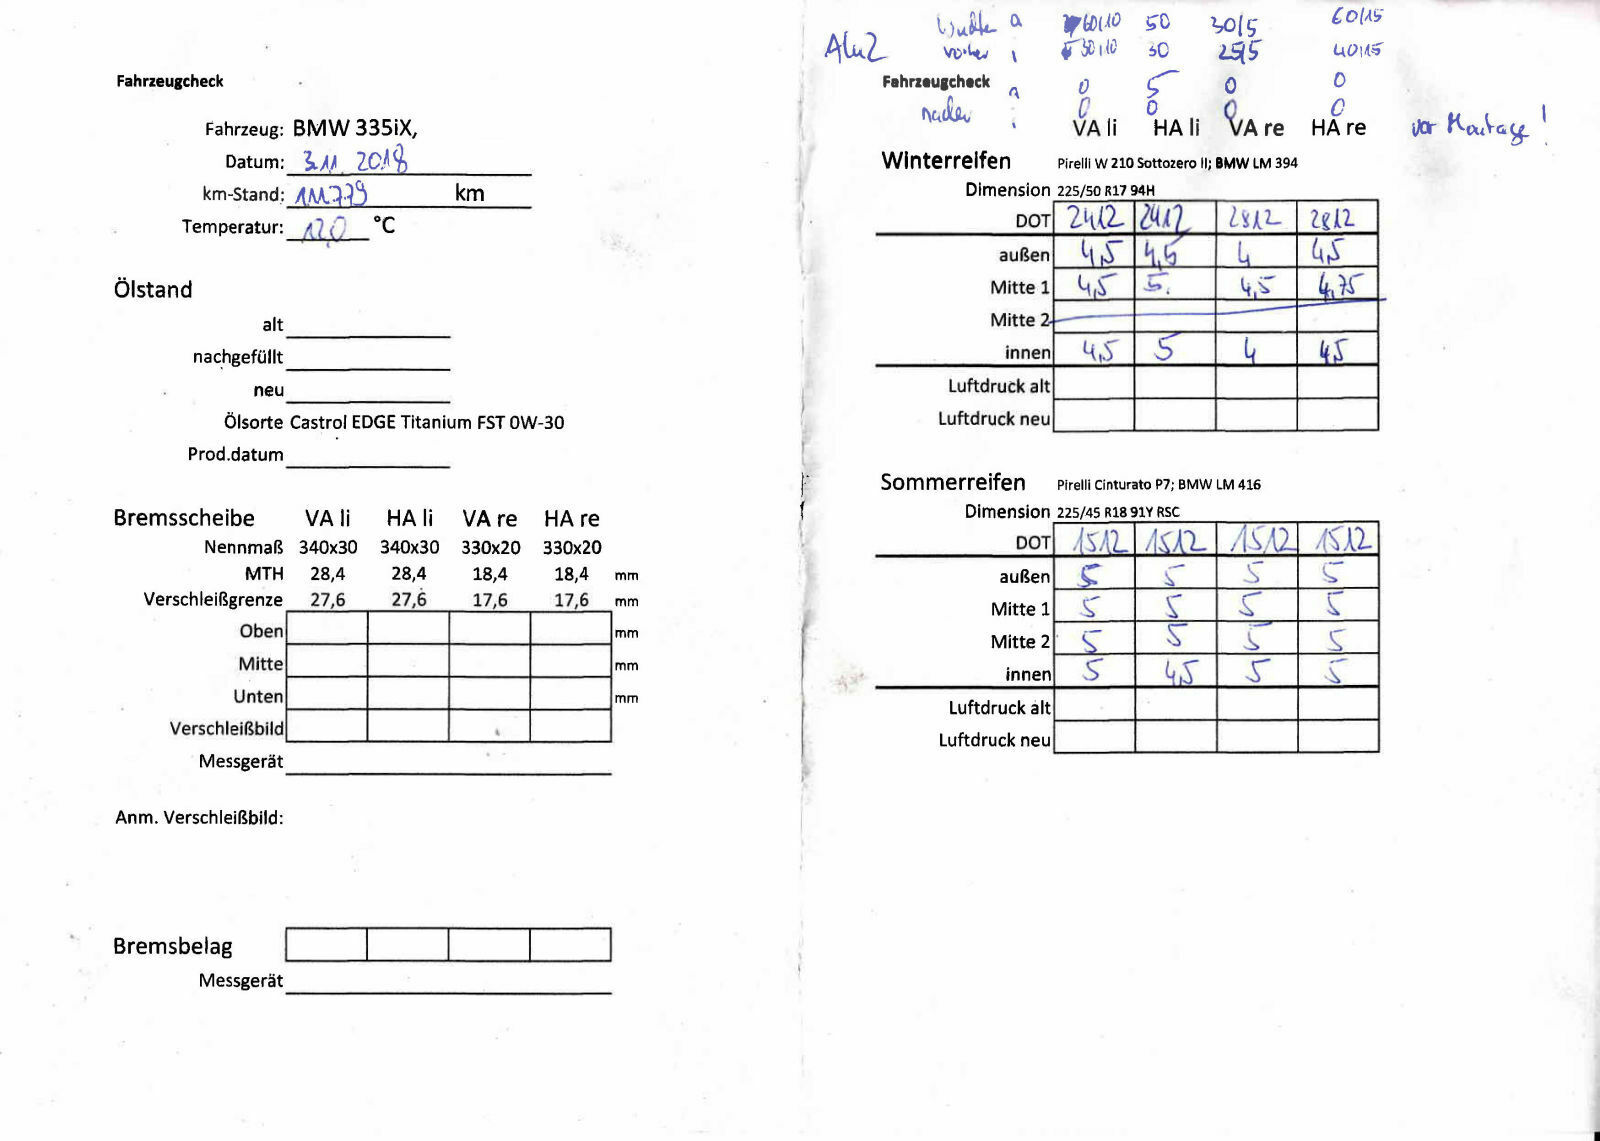 Fahrzeugcheck
Fahrzeug: BMW 335iX,
Datum: 3.11 2018
km-Stand: 111.779 km
Temperatur: 12,0 °C
Ölstand
alt
nachgefüllt
neu
Ölsorte Castrol EDGE Titanium FST 0W-30
Prod.datum
Bremsscheibe VA li HA li VA re HA re
Nennmaß 340x30 340x30 330x20 330x20
MTH 28,4 28,4 18,4 18,4 mm
Verschleißgrenze 27,6 27,6 17,6 17,6 mm
Oben mm
Mitte mm
Unten mm
Verschleißbild
Messgerät
Anm. Verschleißbild:
Bremsbelag
Messgerät
a 60/10 50 30/5 60/15
Alu2 vorher i 30/10 30 25/5 40/15
Fahrzeugcheck a 0 5 0 0
nachher i 0 0 0 0
VA li HA li VA re HA re vor Montage!
Winterreifen Pirelli W 210 Sottozero II; BMW LM 394
Dimension 225/50 R17 94H
DOT 2412 2412 2812 2812
außen 4,5 4,5 4 4,5
Mitte 1 4,5 5. 4,5 4,75
Mitte 2
innen 4,5 5 4 4,5
Luftdruck alt
Luftdruck neu
Sommerreifen Pirelli Cinturato P7; BMW LM 416
Dimension 225/45 R18 91Y RSC
DOT 1512 1512 1512 1512
außen 5 5 5 5
Mitte 1 5 5 5 5
Mitte 2 5 5 5 5
innen 5 4,5 5 5
Luftdruck alt
Luftdruck neu